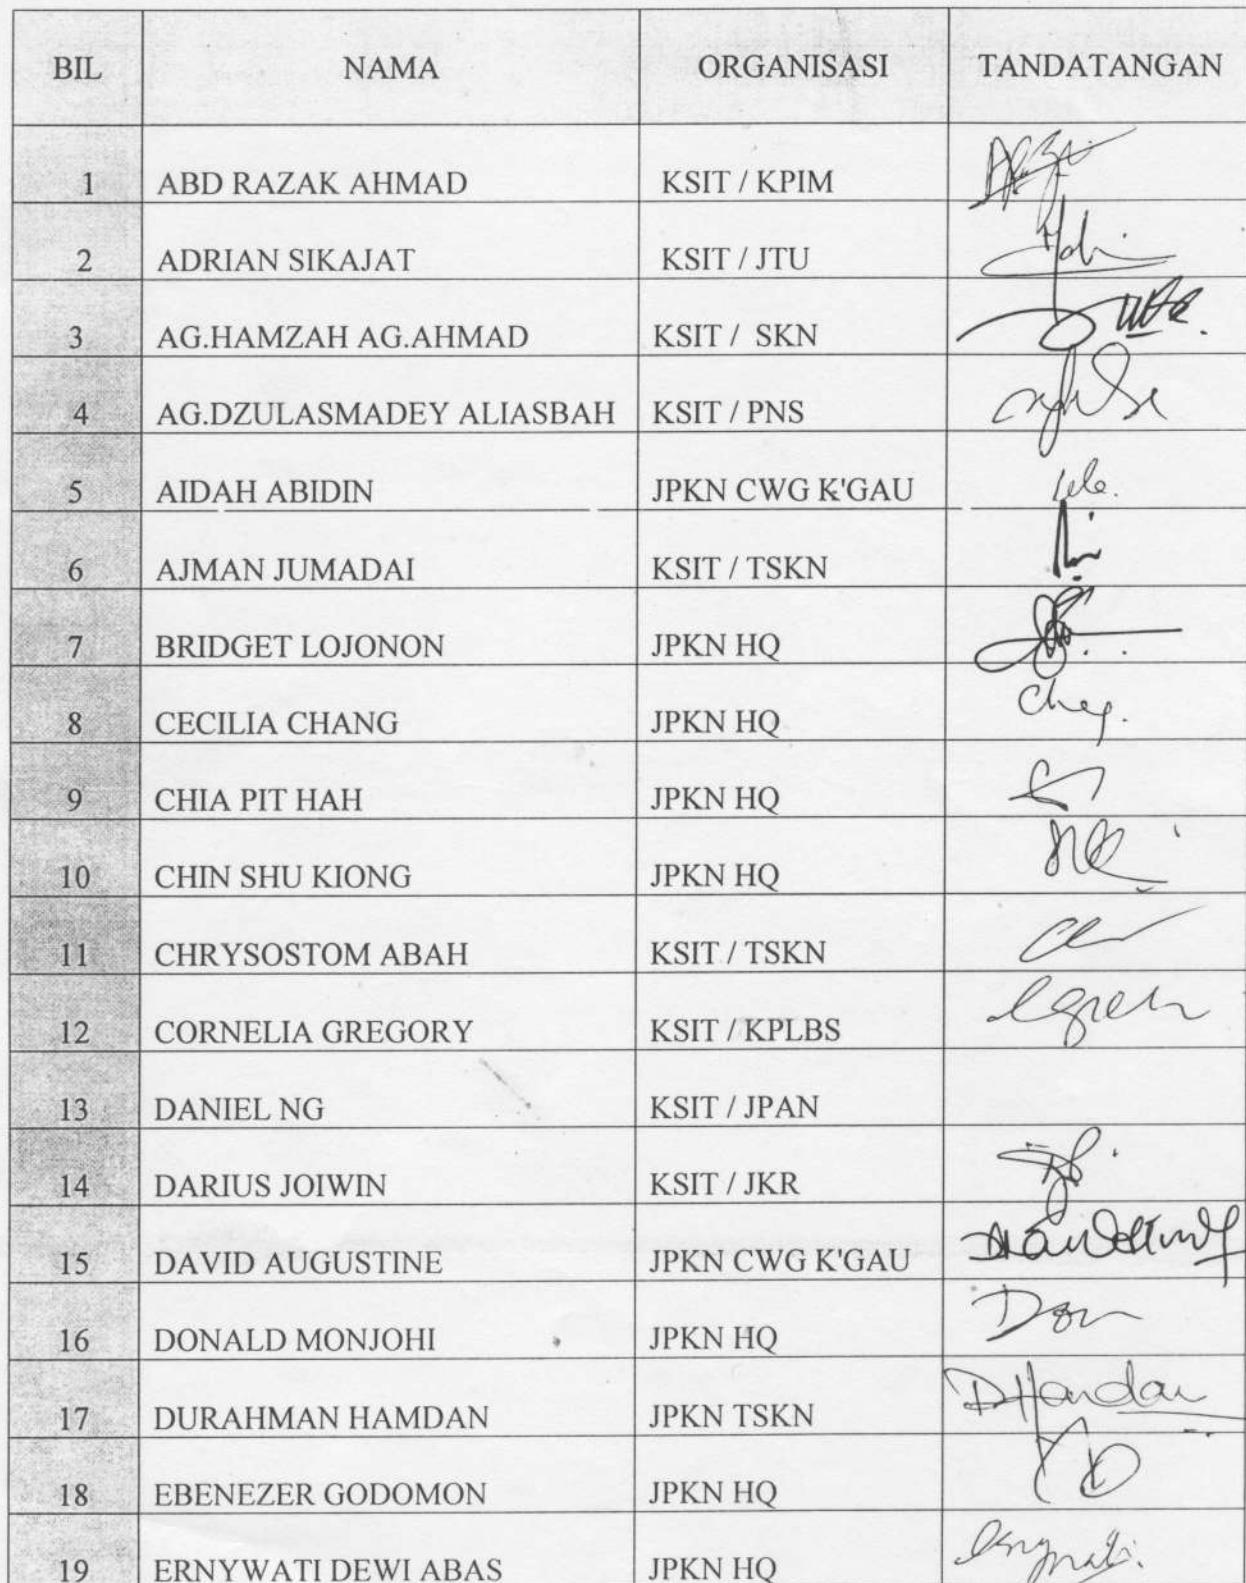 BIL NAMA ORGANISASI TANDATANGAN
1 ABD RAZAK AHMAD KSIT / KPIM
2 ADRIAN SIKAJAT KSIT / JTU
3 AG.HAMZAH AG.AHMAD KSIT / SKN
4 AG.DZULASMADEY ALIASBAH KSIT / PNS
5 AIDAH ABIDIN JPKN CWG K'GAU
6 AJMAN JUMADAI KSIT / TSKN
7 BRIDGET LOJONON JPKN HQ
8 CECILIA CHANG JPKN HQ
9 CHIA PIT HAH JPKN HQ
10 CHIN SHU KIONG JPKN HQ
11 CHRYSOSTOM ABAH KSIT / TSKN
12 CORNELIA GREGORY KSIT / KPLBS
13 DANIEL NG KSIT / JPAN
14 DARIUS JOIWIN KSIT / JKR
15 DAVID AUGUSTINE JPKN CWG K'GAU
16 DONALD MONJOHI JPKN HQ Don
17 DURAHMAN HAMDAN JPKN TSKN
18 EBENEZER GODOMON JPKN HQ
19 ERNYWATI DEWI ABAS JPKN HQ